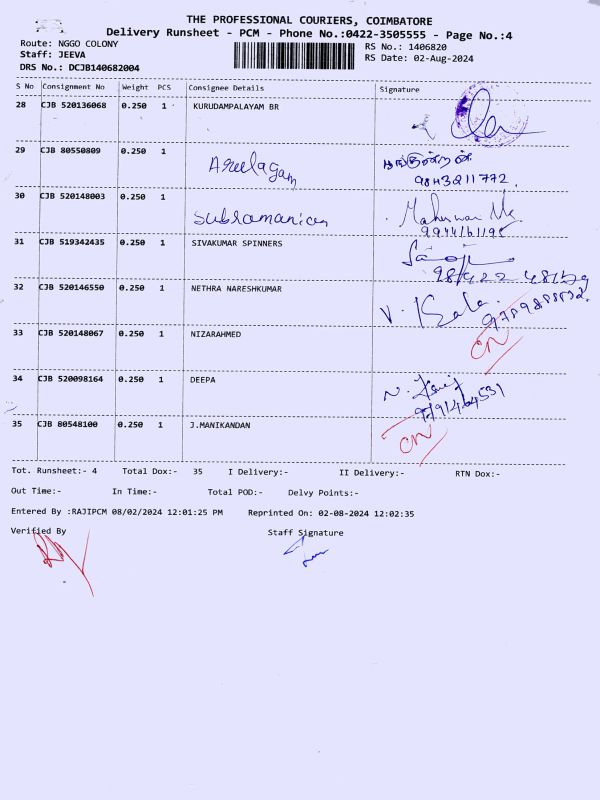 THE PROFESSIONAL COURIERS, COIMBATORE
Delivery Runsheet - PCM - Phone No.:0422-3505555 - Page No.:4
Route: NGGO COLONY
RS No.: 1406820
Staff: JEEVA
RS Date: 02-Aug-2024
DRS No.: DCJB140682004
S No Consignment No Weight PCS Consignee Details Signature
28 CJB 520136068 0.250 1 KURUDAMPALAYAM BR
29 CJB 80550809 0.250 1
9843211772.
30 CJB 520148003 0.250 1 Subramanian
31 CJB 519342435 0.250 1 SIVAKUMAR SPINNERS
32 CJB 520146550 0.250 1 NETHRA NARESHKUMAR V. Kala.
33 CJB 520148067 0.250 1 NIZARAHMED CN
34 CJB 520098164 0.250 1 DEEPA
35 CJB 80548100 0.250 1 J.MANIKANDAN CN
Tot. Runsheet:- 4 Total Dox:- 35 I Delivery:- II Delivery:- RTN Dox:-
Out Time:- In Time:- Total POD:- Delvy Points:-
Entered By :RAJIPCM 08/02/2024 12:01:25 PM Reprinted On: 02-08-2024 12:02:35
Verified By Staff Signature